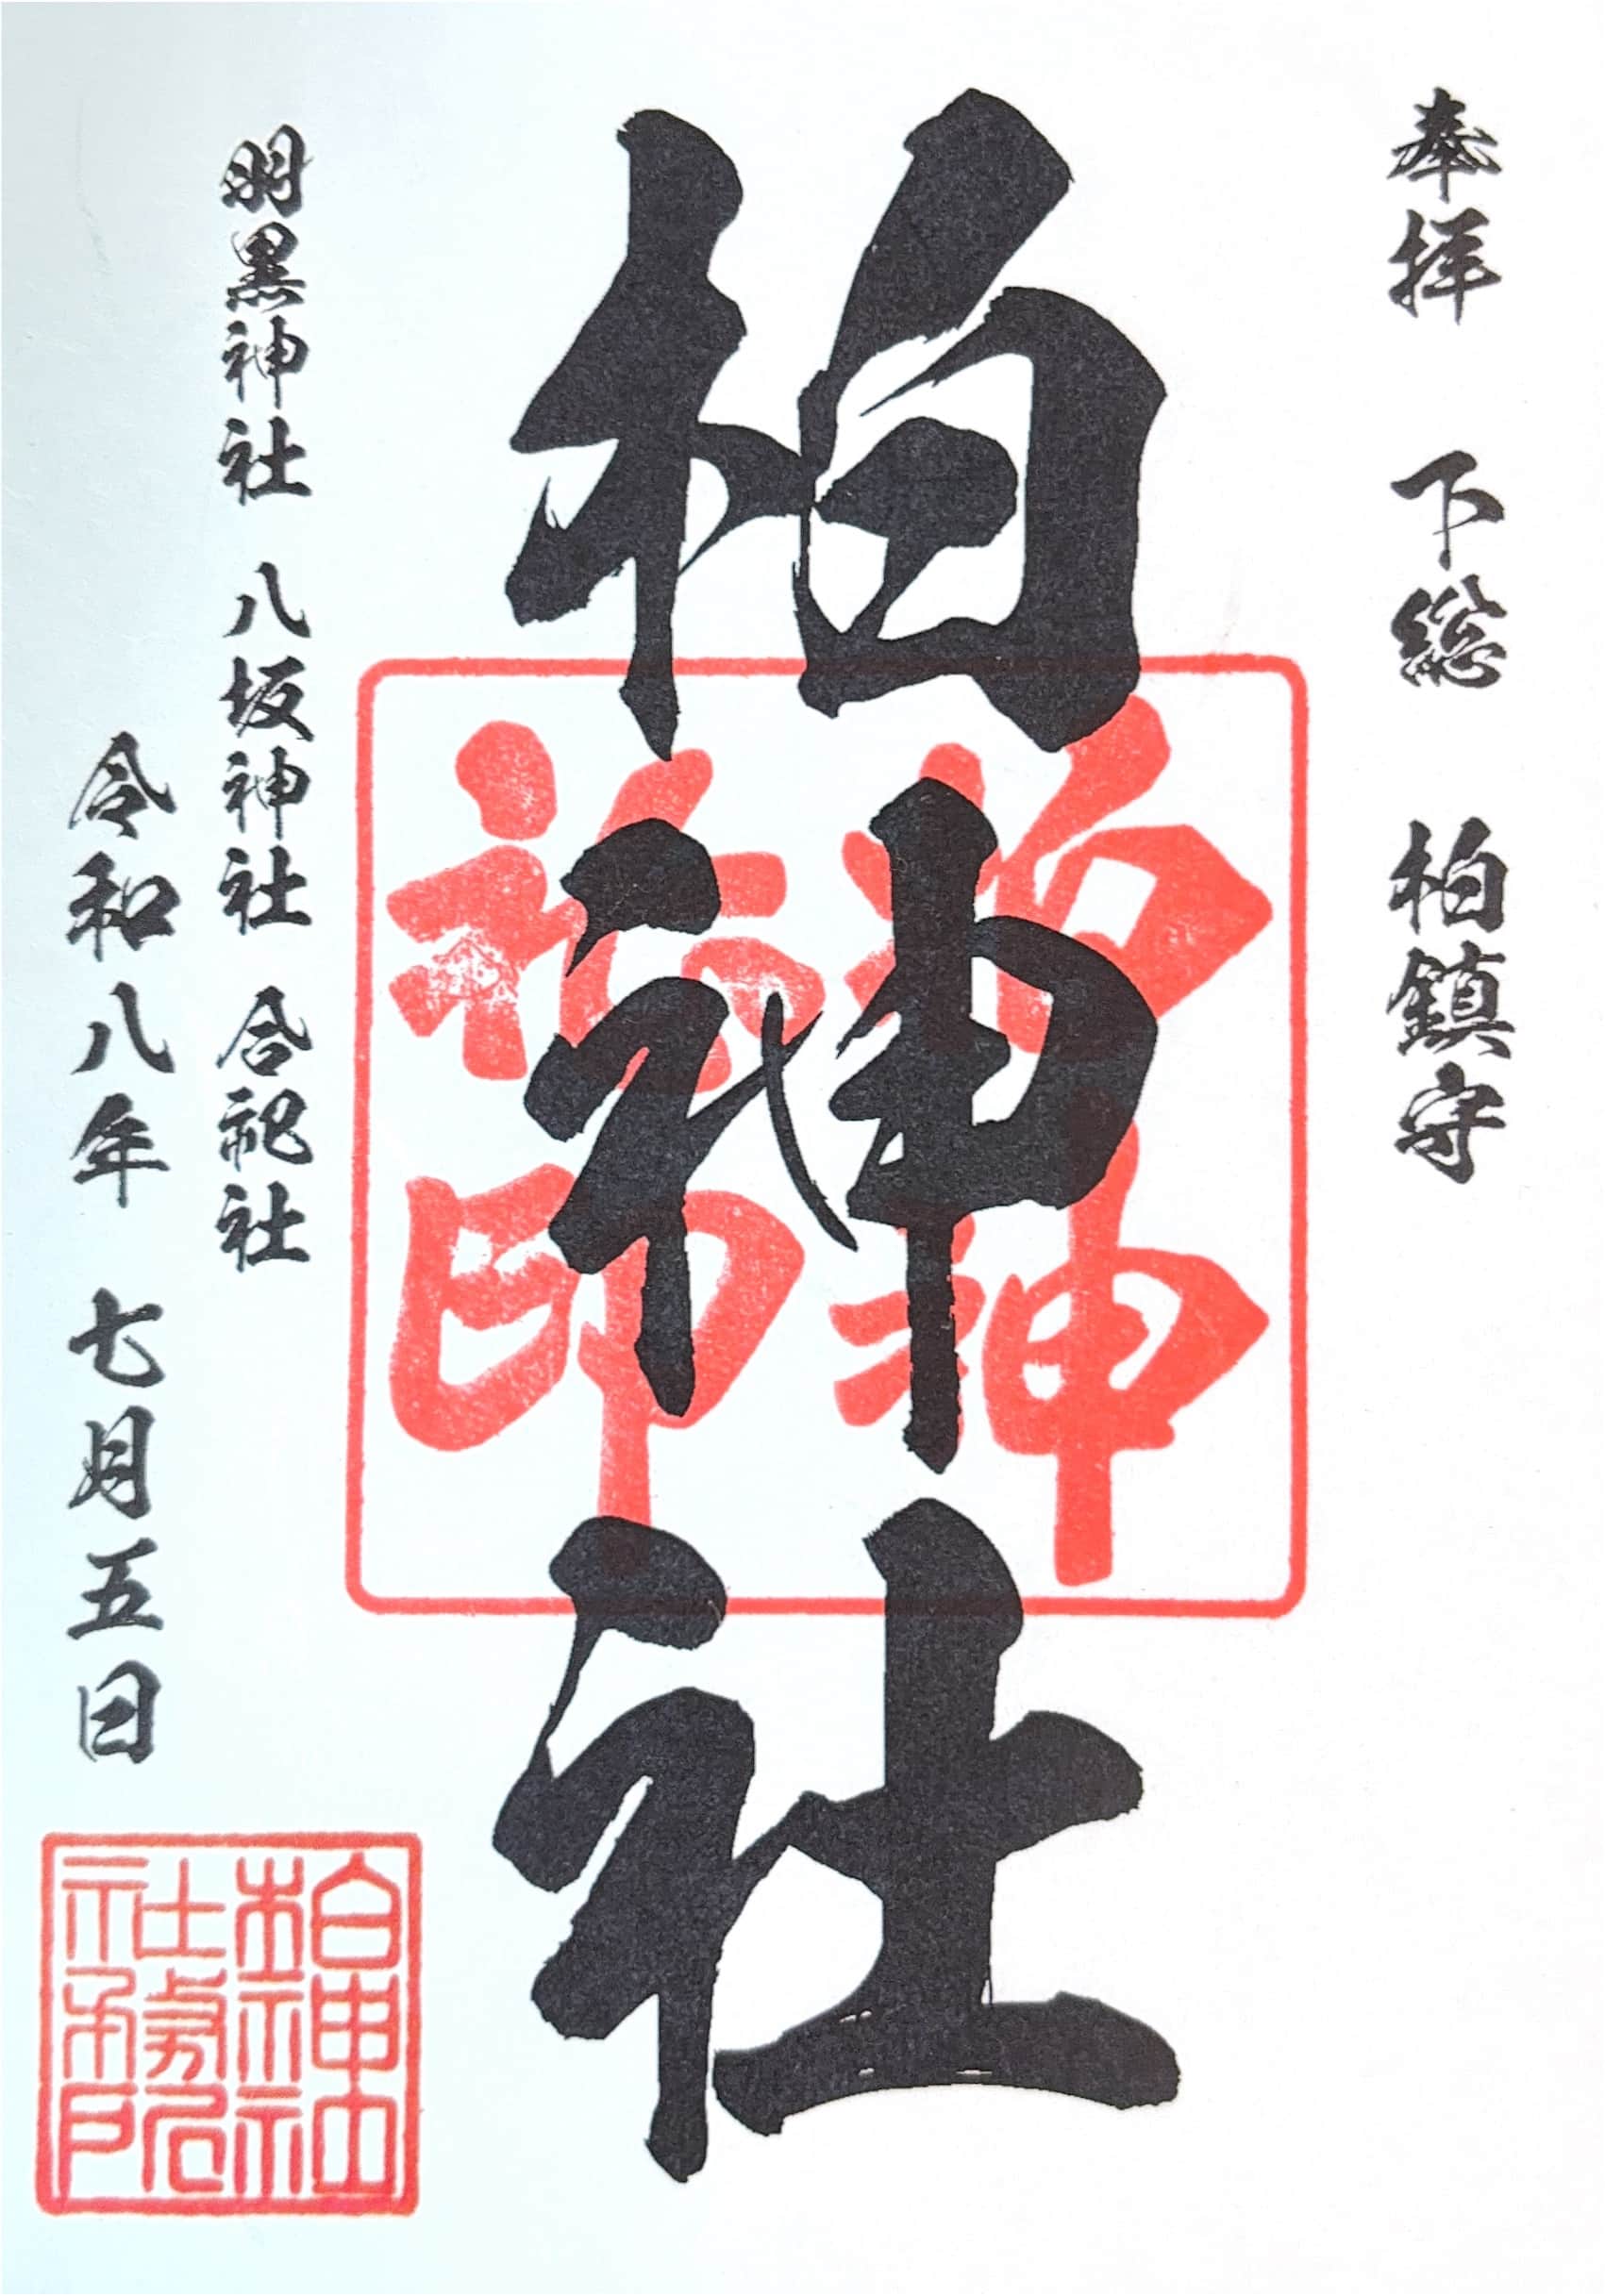 奉拝 下総 柏鎮守
柏神社
柏神
社印
羽黒神社 八坂神社 合祀社
令和八年 七月五日
柏神社
社務所